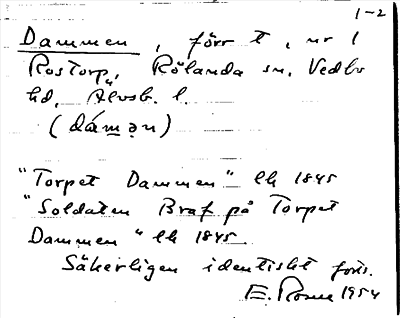 1-2
Dammen, förr t, nr 1
Rostorp, Rölanda sn, Vedbo
hd, Älvsb. l.
(dámən)
"Torpet Dammen" lh 1845
"Soldaten Braf på Torpet
Dammen" lh 1845
Säkerligen identiskt förr.
E. Rosn 1954